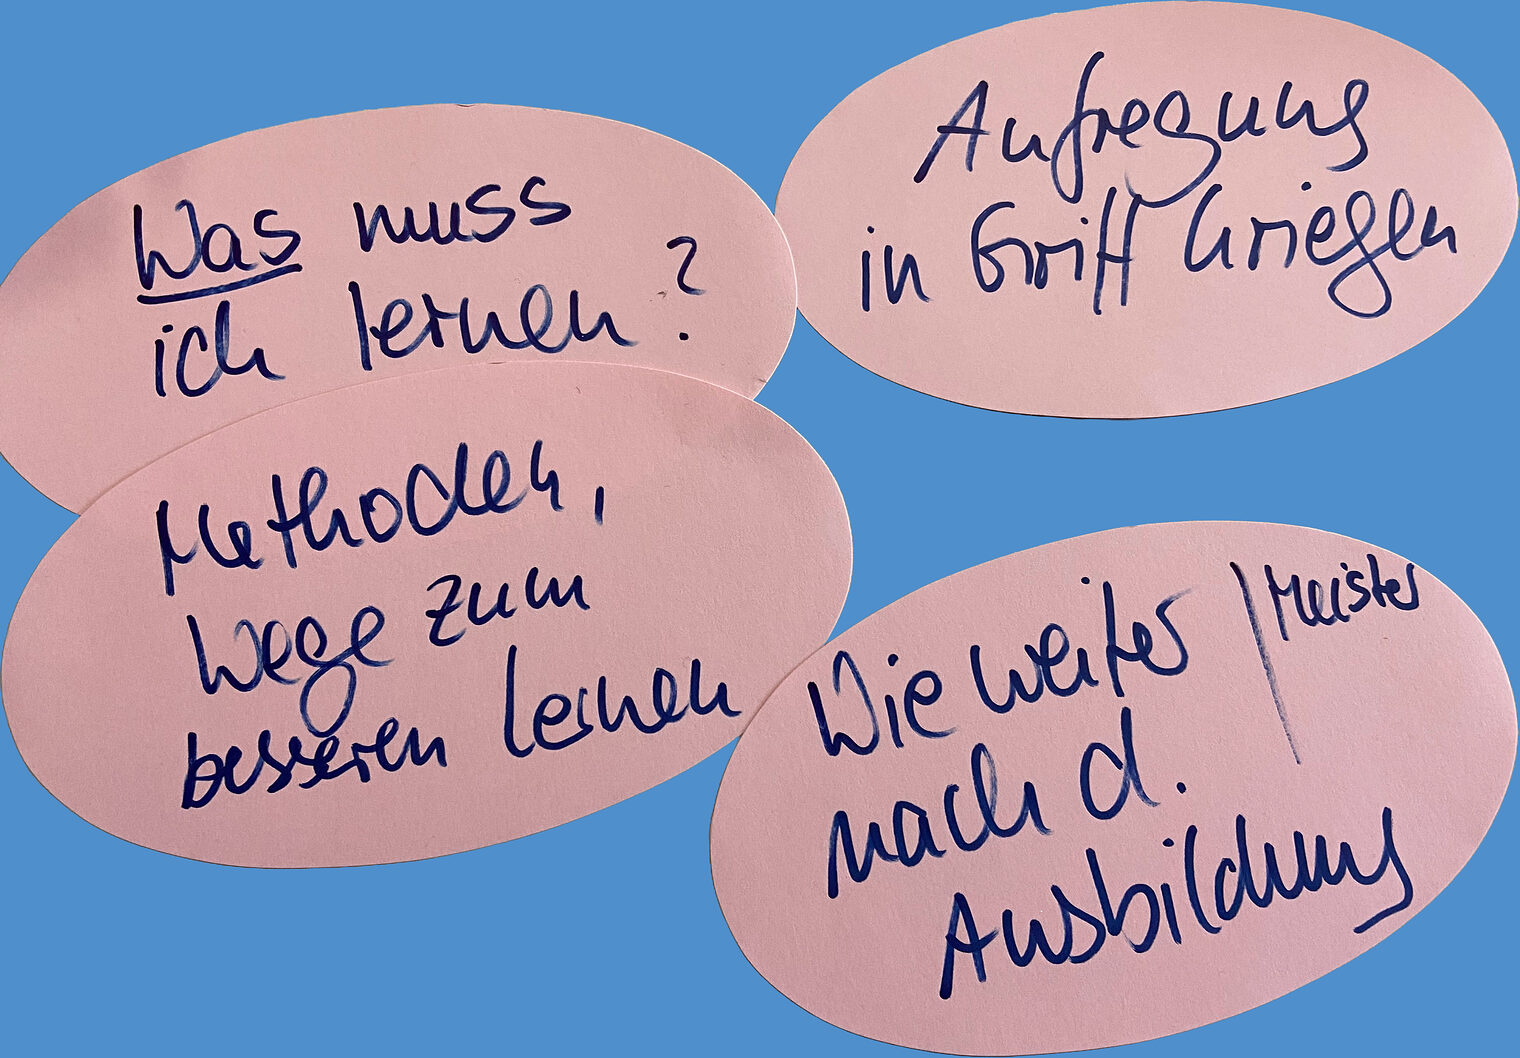 Was muss
ich lernen?
Aufregung
in Griff kriegen
Methoden,
Wege zum
besseren lernen
Wie weiter / Meister
nach d.
Ausbildung